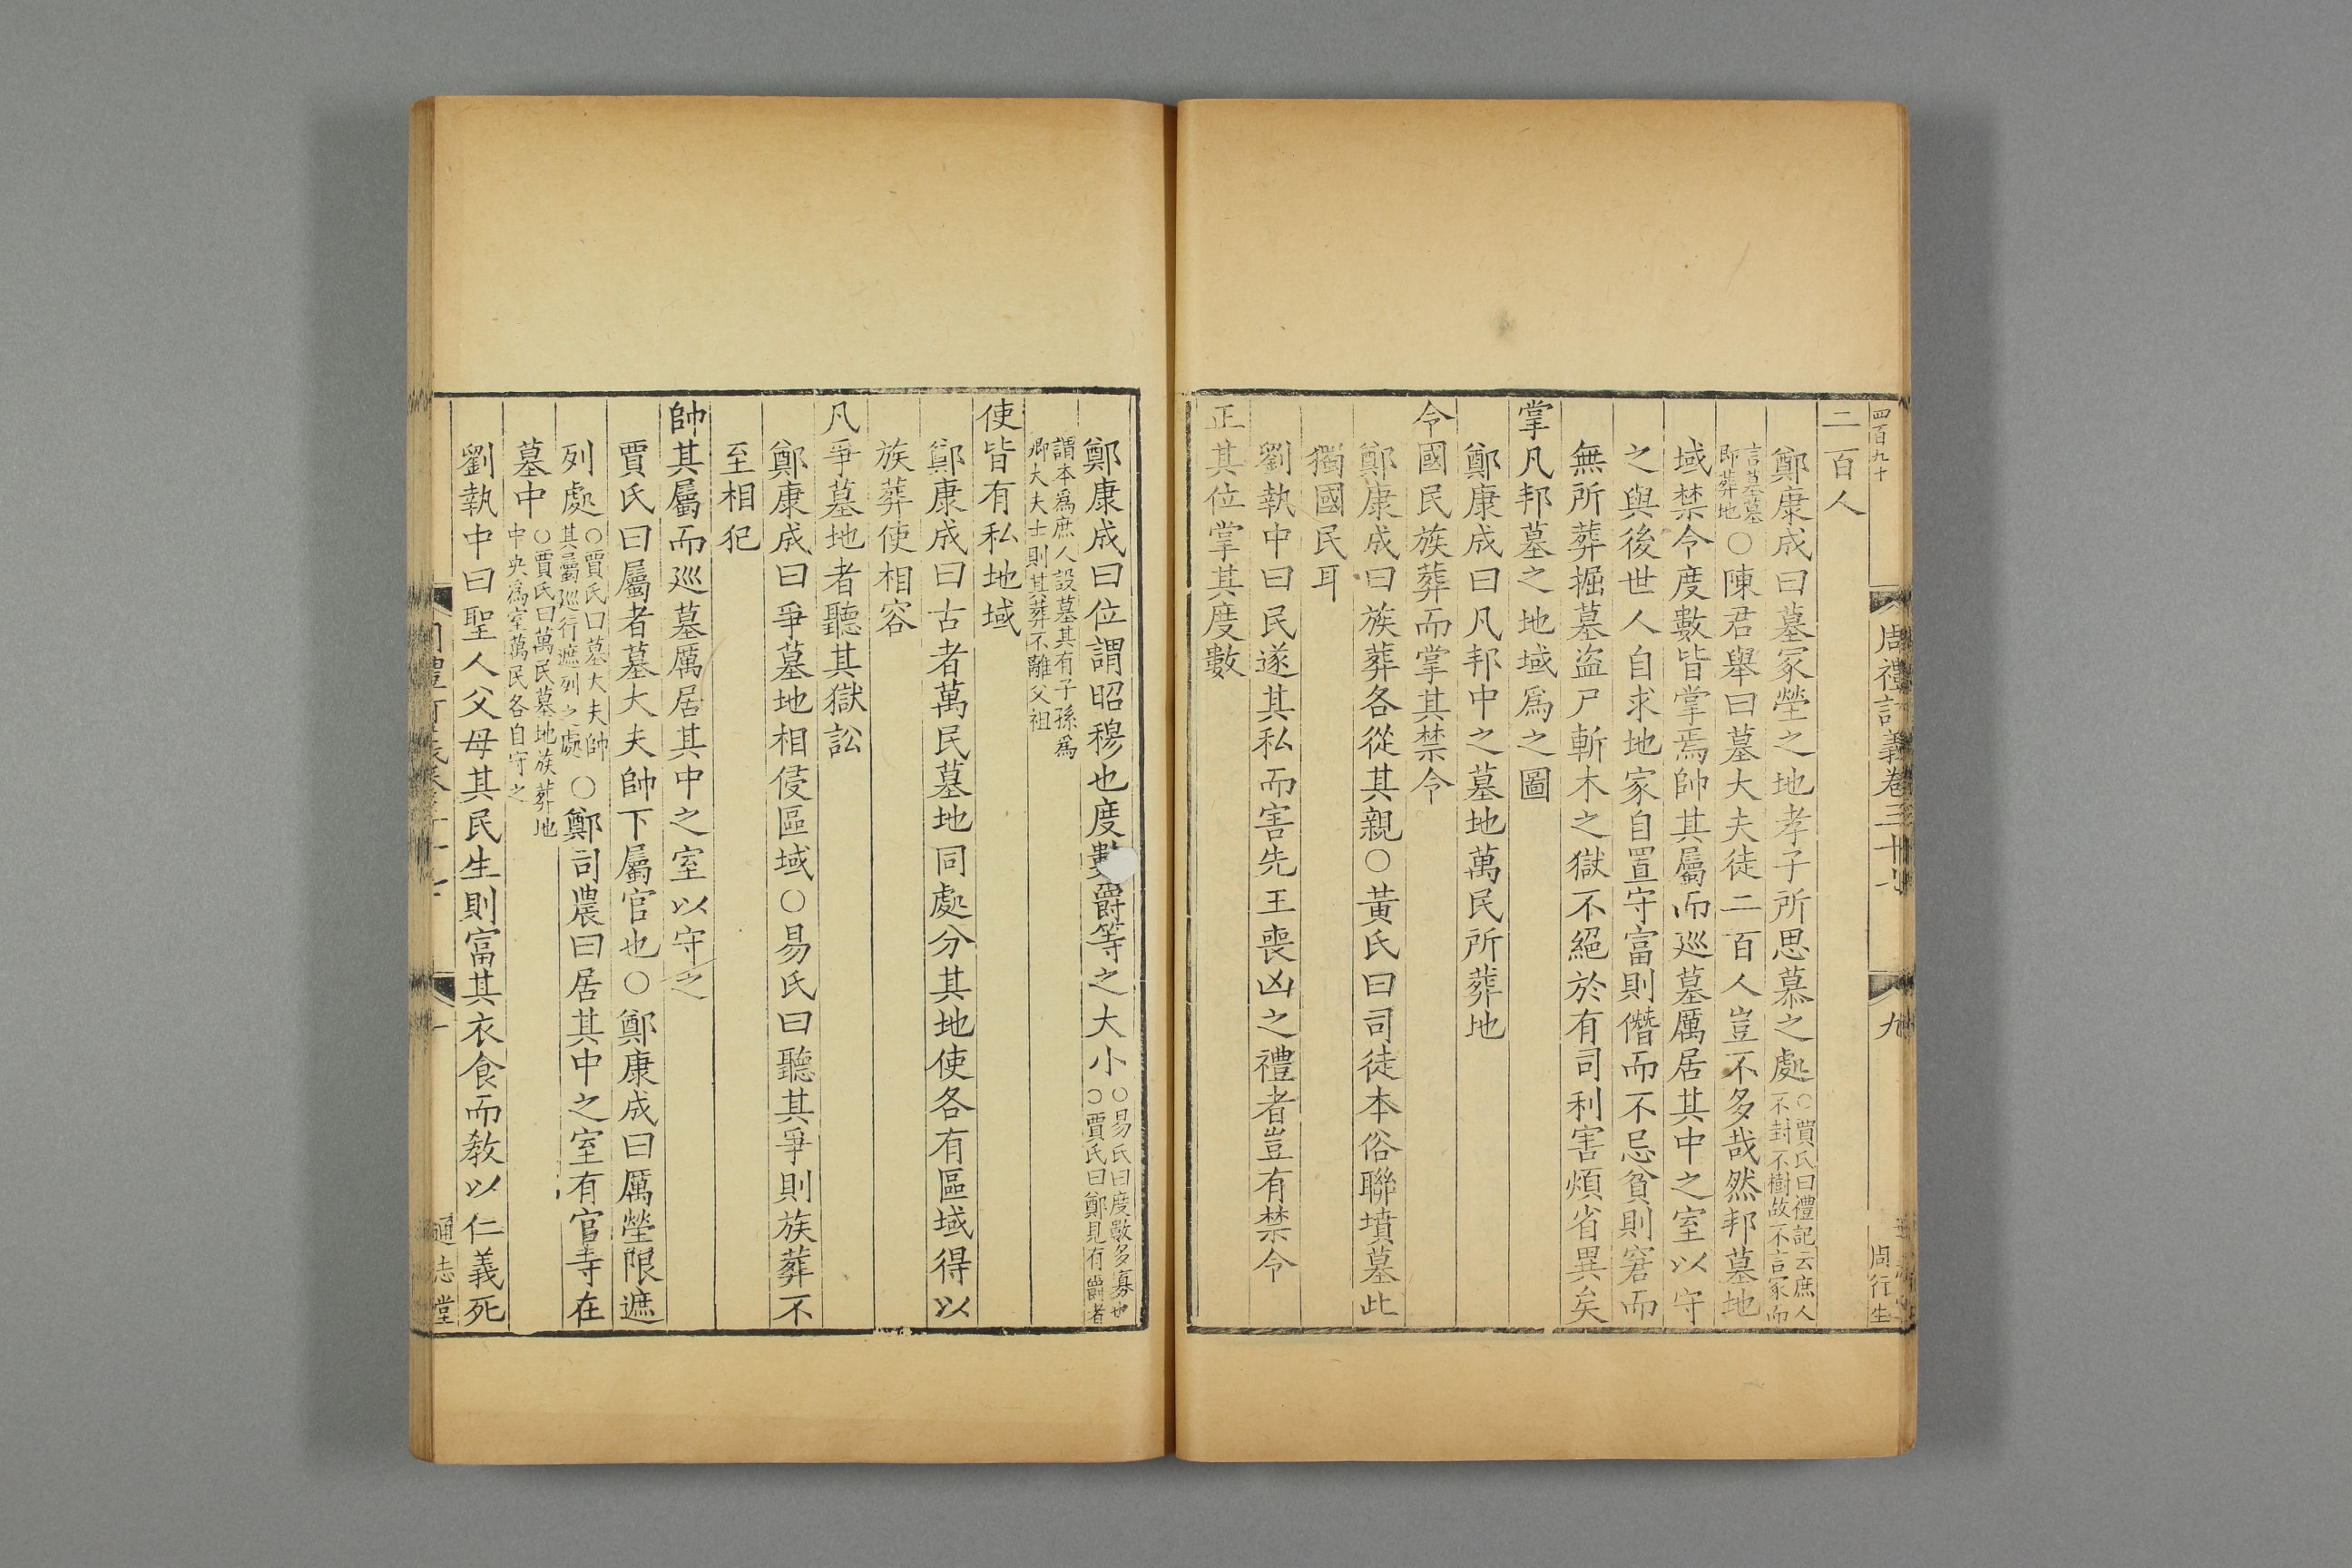 四百九十
周禮訂義卷三十七
九
周行生
二百人
鄭康成曰墓冢塋之地孝子所思慕之處○賈氏曰禮記云庶人不封不樹故不言冢而
言墓墓即葬地○陳君舉曰墓大夫徒二百人豈不多哉然邦墓地
域禁令度數皆掌焉帥其屬而巡墓厲居其中之室以守
之與後世人自求地家自置守富則僭而不忌貧則窘而
無所葬掘墓盜尸斬木之獄不絕於有司利害煩省異矣
掌凡邦墓之地域爲之圖
鄭康成曰凡邦中之墓地萬民所葬地
令國民族葬而掌其禁令
鄭康成曰族葬各從其親○黃氏曰司徒本俗聯墳墓此
獨國民耳
劉執中曰民遂其私而害先王喪凶之禮者豈有禁令
正其位掌其度數
鄭康成曰位謂昭穆也度數爵等之大小○易氏曰度數多寡也○賈氏曰鄭見有爵者
謂本爲庶人設墓其有子孫爲卿大夫士則其葬不離父祖
使皆有私地域
鄭康成曰古者萬民墓地同處分其地使各有區域得以
族葬使相容
凡爭墓地者聽其獄訟
鄭康成曰爭墓地相侵區域○易氏曰聽其爭則族葬不
至相犯
帥其屬而巡墓厲居其中之室以守之
賈氏曰屬者墓大夫帥下屬官也○鄭康成曰厲塋限遮
列處○賈氏曰墓大夫帥其屬巡行遮列之處○鄭司農曰居其中之室有官寺在
墓中○賈氏曰萬民墓地族葬地中央爲室萬民各自守之
劉執中曰聖人父母其民生則富其衣食而教以仁義死
通志堂